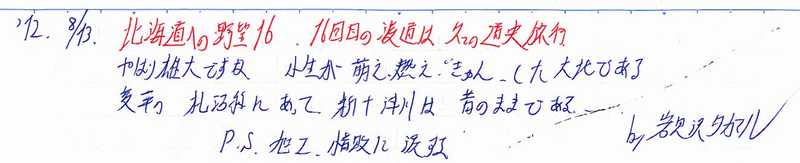 '12. 8/13. 北海道への野望16 . 16回目の渡道は 久々の道央旅行
やはり雄大ですね 小生が 萌え、燃え、きゅん、した大地である
変革の 札沼線にあって 新十津川は 昔のままである
P.S. 旭工、惜敗に涙
by 岩見沢